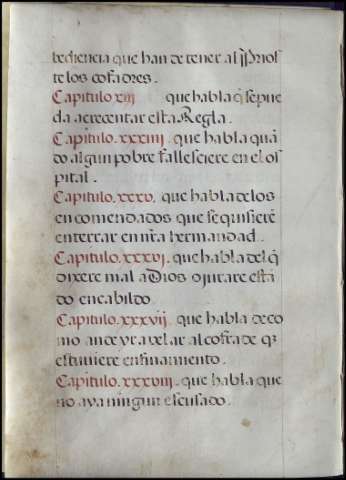 bediencia que han de tener al Prios
te los cofadres.
Capitulo xiii que habla q̃ se pue
da acrecentar esta Regla.
Capitulo. xxxiiii. que habla quã
do algun pobre fallesciere en el os
pital.
Capitulo. xxxv. que habla de los
encomendados que se quisierẽ
enterrar en nr̃a hermandad.
Capitulo. xxxvi. que habla del q̃
dixere mal a Dios o jurare está
do en cabildo.
Capitulo. xxxvii. que habla de co
mo an de yr a velar al cofrade q̃
estuviere en finamiento.
Capitulo. xxxviii. que habla que
no aya ningun escusado.